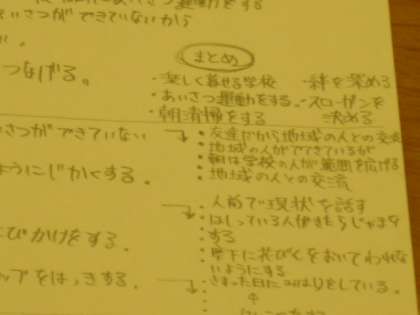 あいさつ運動をする
いさつができていないから
まとめ
つなげる。
・楽しく暮せる学校
・絆を深める
・あいさつ運動をする
・スローガンを
決める
・朝清掃をする
さつができていない
・友達だから地域の人との交流
・地域の人ができているが
ようにじかくする。
朝は学校の人が範囲を広げる
・地域の人との交流
・人前で現状を話す
・はしっている人
じゃまを
びかけをする。
する
・廊下に花びんをおいてわれな
いようにする
ップをはっきする。
・きまった日に みはりをしている。